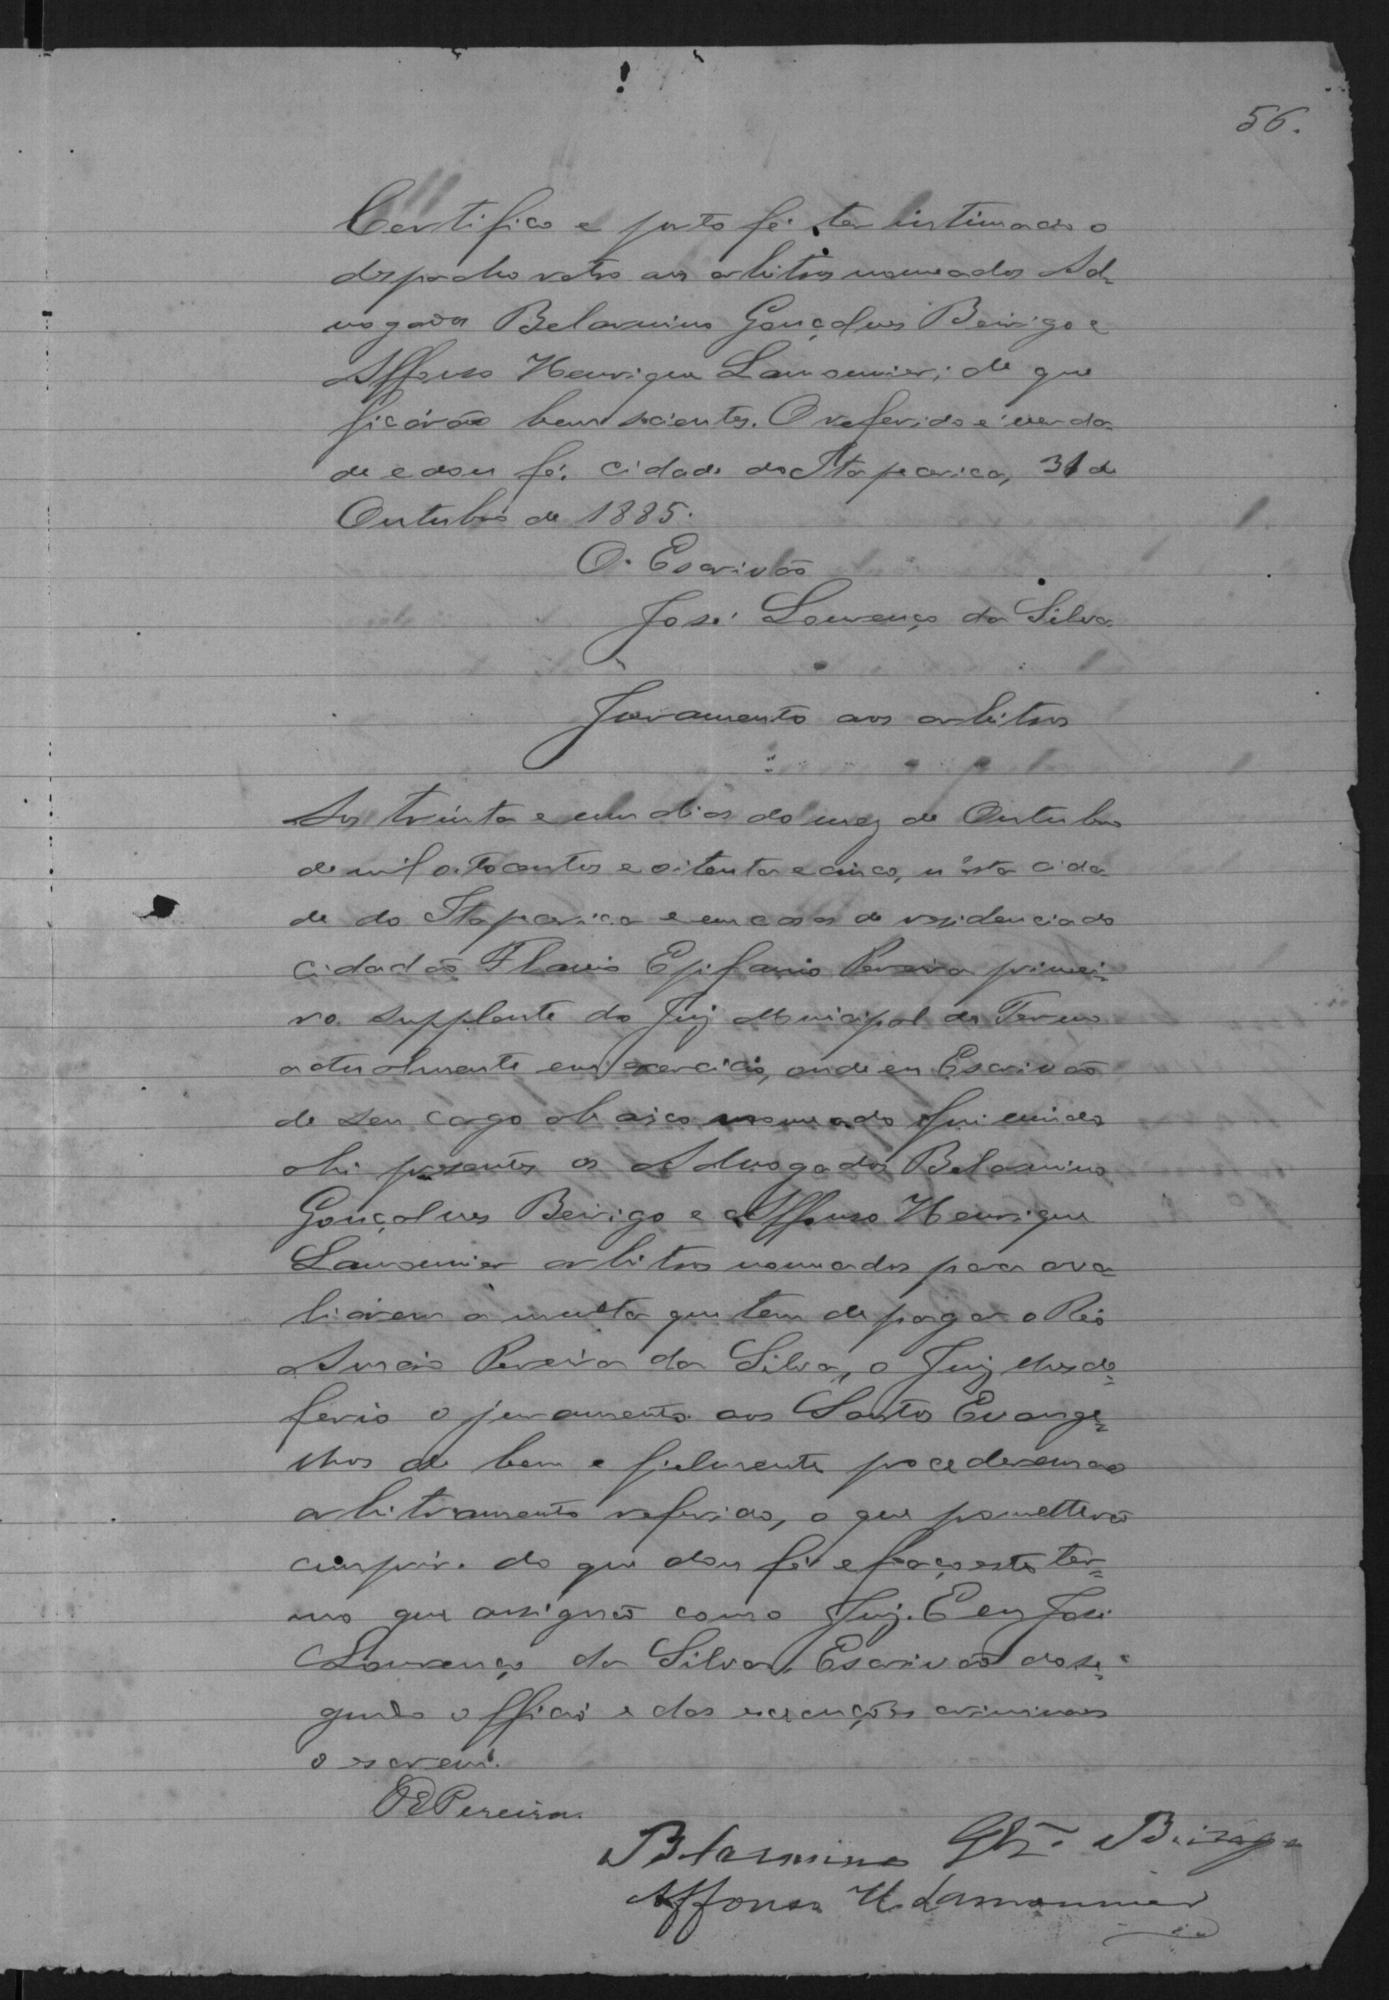 56.
Certifico e porto fé ter intimado o
despacho retro aos arbitros nomeados Ad-
vogados Belarmino Gonçalves Beirigo e
Affonso Henrique Lamounier; de que
ficárão bem scientes. O referido é verda-
de e dou fé. Cidade do Itapecerica, 31 de
Outubro de 1885.
O Escrivão
José Lourenço da Silva
Juramento aos arbitros
Aos trinta e um dias do mez de Outubro
de mil oitocentos e oitenta e cinco, n'esta cida-
de do Itapecerica e em casa de residencia do
cidadão Flavio Epifanio Pereira primei-
ro supplente do Juiz Municipal do Termo
actualmente em exercicio, onde eu Escrivão
de seu cargo abaixo nomeado fui vindo
ahi presentes os Advogados Belarmino
Gonçalves Beirigo e Affonso Henrique
Lamounier arbitros nomeados para ava-
liárem a multa que tem de pagar o Réo
Pereira da Silva, o Juiz lhes de-
ferio o juramento aos Santos Evange-
lhos de bem e fielmente procederem ao
arbitramento referido, o que prometterão
cumprir. do que dou fé e faço este ter-
mo que assignão com o Juiz. E eu José
Lourenço da Silva, Escrivão do se-
gundo officio e das execuções criminaes
o escrevi.
Pereira
Belarmino Glz. Beirigo
Affonso H. Lamounier